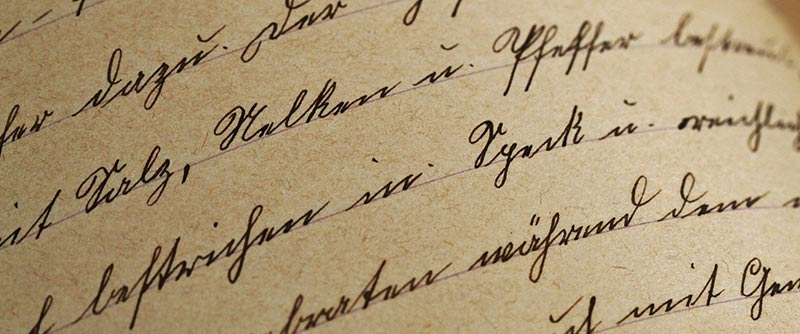 dazu. Der
mit Salz, Nelken u. Pfeffer bestreut
bestrichen in. Speck u. reichlich
braten während dem
mit